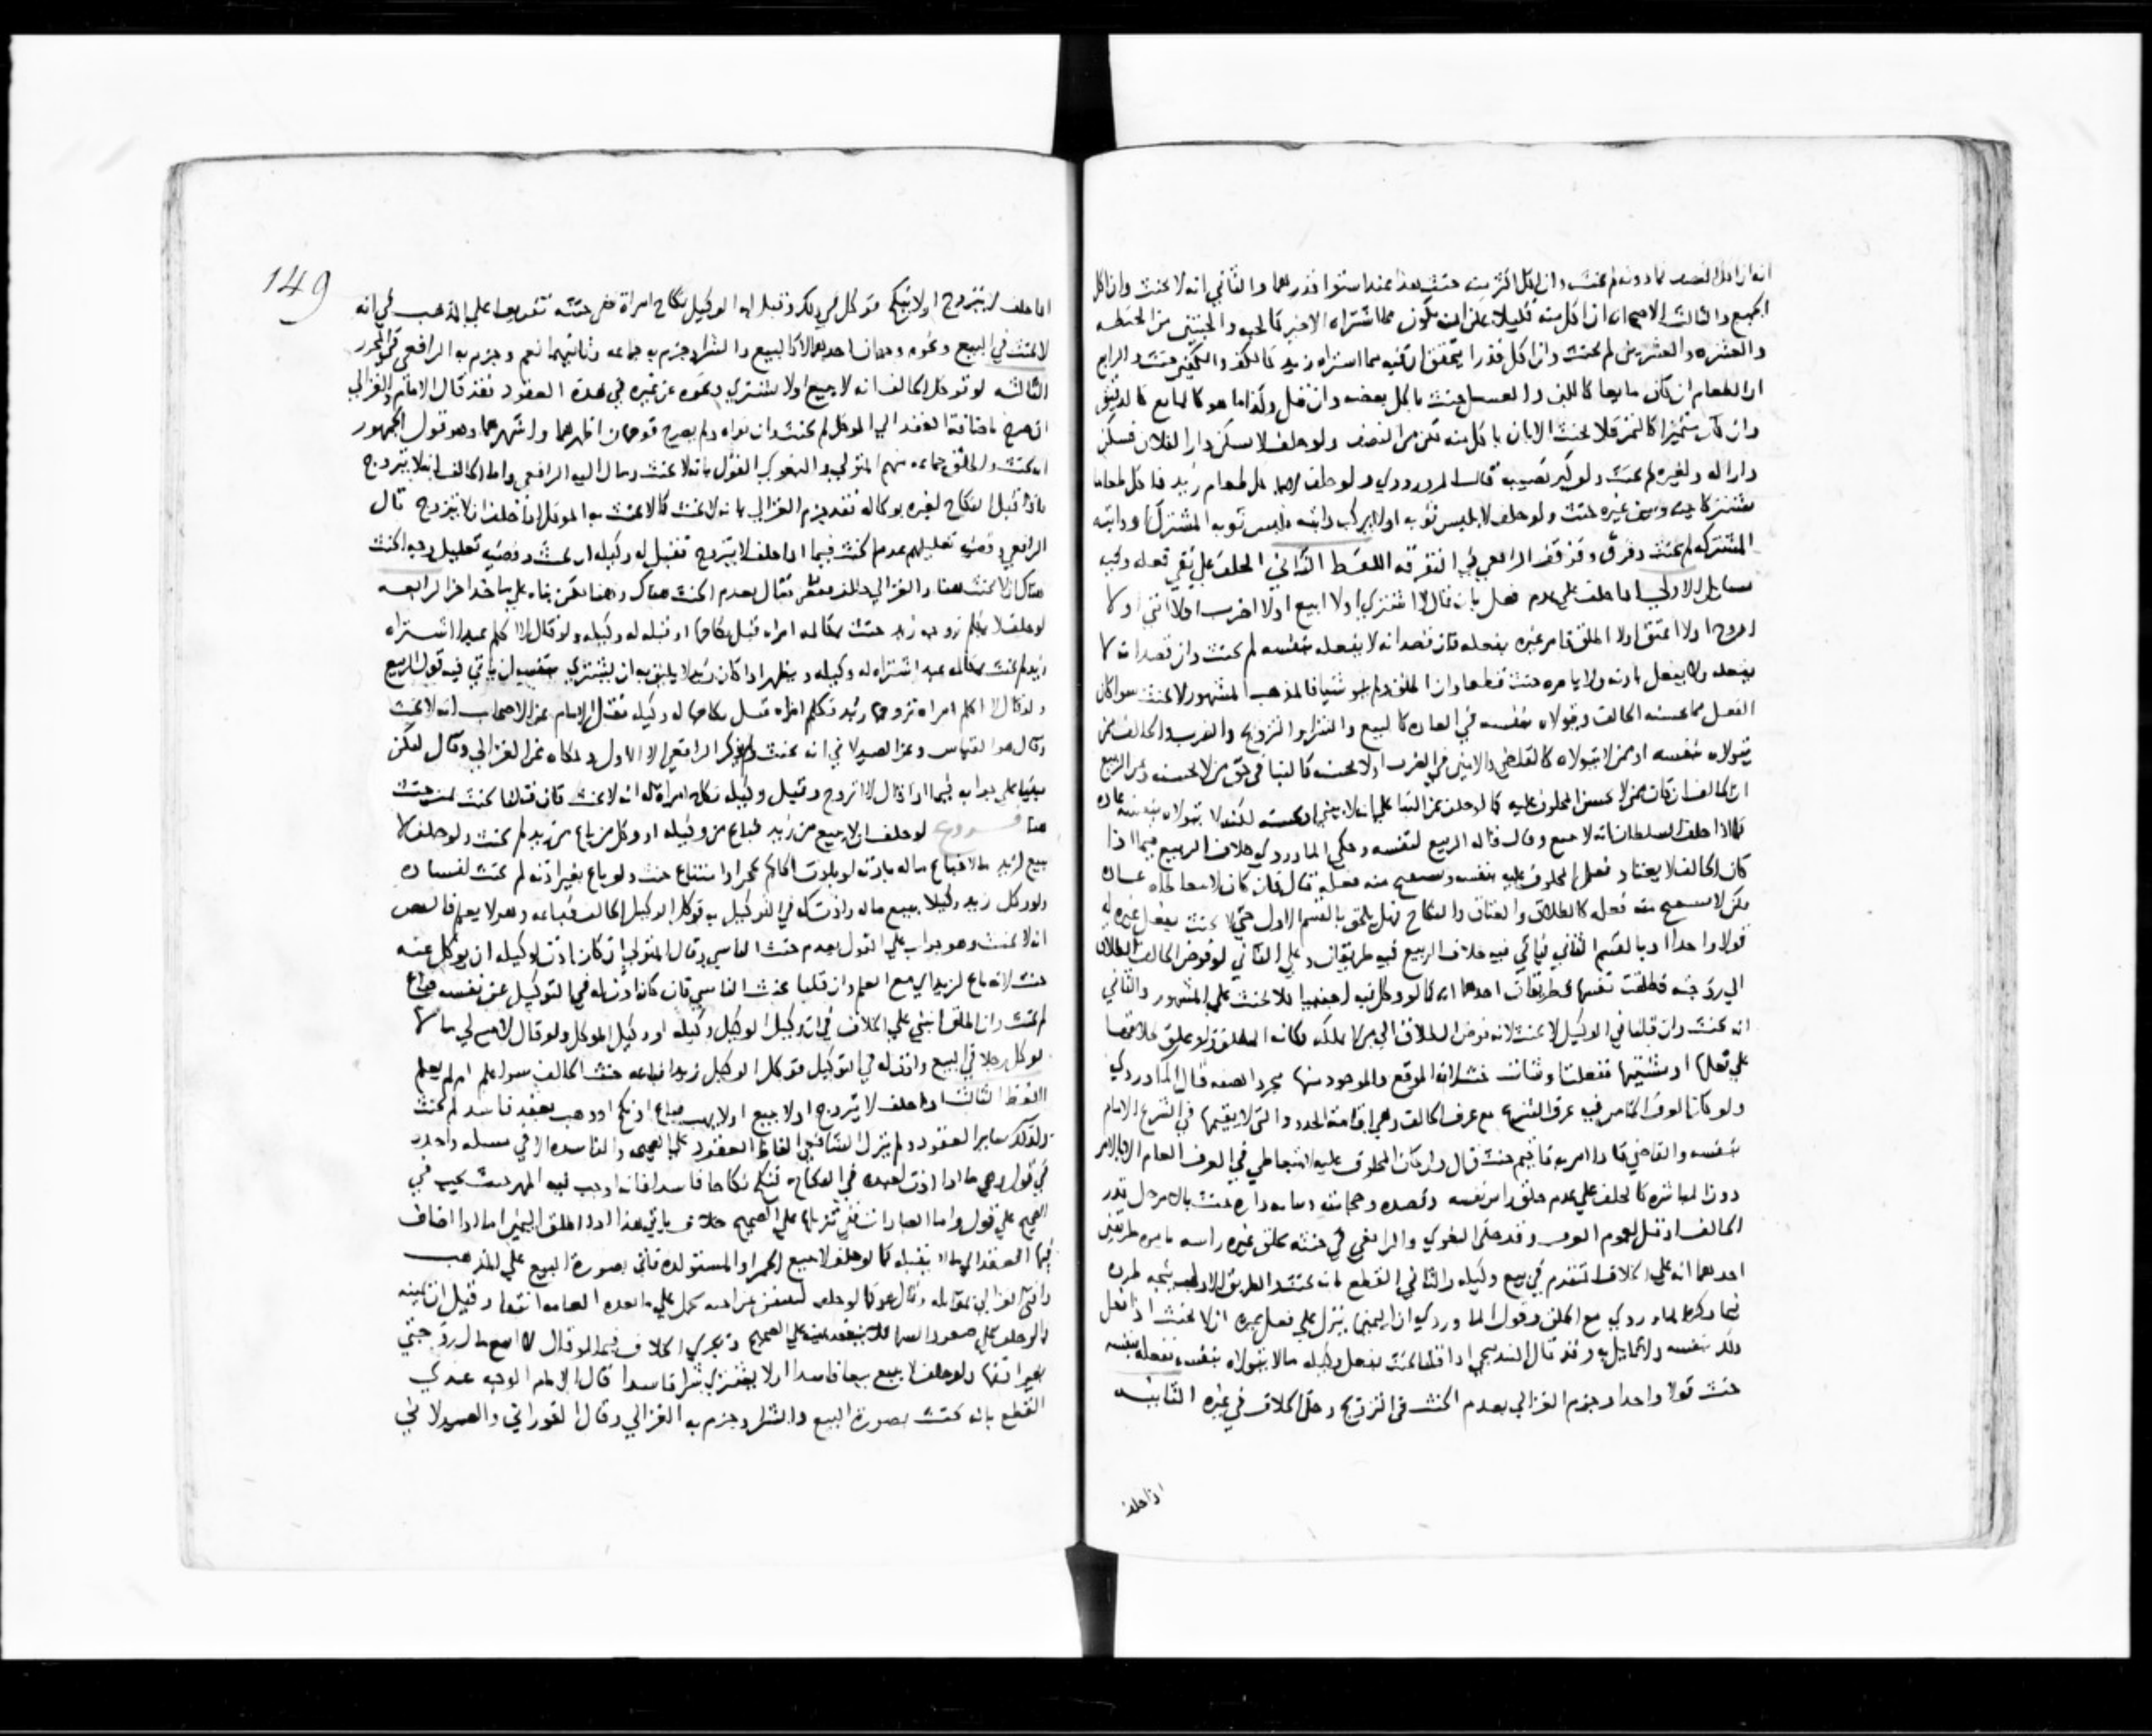 انه ان اكل النصف فما دونه لم يحنث وان اكل اكثر منه حنث هذا عند استوا قدرهما والثاني انه لا يحنث وان اكل
الجميع والثالث الاصح انه ان اكل منه قليلا يمكن ان يكون مما اشتراه الاخر كالحبه والحبتين من الحنطه
والعشره والعشرين لم يحنث وان اكل قدرا يتحقق ان فيه مما اشتراه زيد كالكف والكفين حنث والرابع
ان الطعام ان كان مايعا كاللبن والعسل حنث باكل بعضه وان قل وكذا ما هو كالمايع كالدقيق
وان كان متميزا كالتمر فلا يحنث الا بان ياكل منه اكثر من النصف ولو حلف لا يسكن دار الفلان فسكن
دارا له ولغيره لم يحنث ولو كثر نصيبه قاله الماوردي ولو حلف لا ياكل طعام زيد فاكل طعاما
مشتركا بينه وبين غيره حنث ولو حلف لا يلبس ثوبه اولا يركب دابته فلبس ثوبه المشترك او دابته
المشتركه لم يحنث وفرق وقد توقف الرافعي في التفرقه اللفظ الثاني الحلف علي نفي فعله وفيه
مسايل الاولي اذا حلف علي عدم فعل بان قال لا اشتري اولا ابيع اولا اضرب اولا
اتزوج اولا اعتق اولا اطلق فامر غيره بفعله فان قصد انه لا يفعله بنفسه لم يحنث وان قصد انه لا
يفعله ولا يفعل باذنه ولا يامره حنث قطعا وان اطلق ولم ينو شيا فالمذهب المشهور لا يحنث سوا كان
الفعل مما يحسنه الحالف ويتولاه بنفسه في العاده كالبيع والشرا والتزويج والضرب والحالف ممن
يتولاه بنفسه او ممن لا يتولاه كالقاضي والامير في الضرب اولا يحسنه كالبنا في حق من لا يحسنه وعن الربيع
ان الحالف ان كان ممن لا يحسن المحلوف عليه كما لو حلف عن البنا علي انه لا يبني او يحسنه لكنه لا يتولاه بنفسه عاده
كما اذا حلف السلطان انه لا يبيع وقال قاله الربيع لنفسه وحكي الماوردي خلاف الربيع فيما اذا
كان الحالف لا يعتاد فعل المحلوف عليه بنفسه ويصح منه فعله قال فان كان لا يتعاطاه عاده
لكن لا يصح منه فعله كالطلاق والعتاق والنكاح فهل يلحق بالقسم الاول حتي لا يحنث بفعل غيره له
قولا واحدا او بالقسم الثاني فياتي فيه خلاف الربيع فيه طريقان وعلي الثاني لو فوض الحالف الطلاق
الي زوجته فطلقت نفسها فطريقان احدهما انه كما لو وكل فيه اجنبيا فلا يحنث علي المشهور والثاني
انه يحنث وان قلنا في الوكيل لا يحنث لانه فوض الطلاق الي من لا يملكه فكانه المطلق ولو علق طلاقها
علي فعلها او مشيتها ففعلت او شات حنث لانه الموقع والموجود منها مجرد الصفه قال الماوردي
ولو كان العرف الخاص فيه عرف الشرع مع عرف الحالف وهي اقامة الحدود التي لا يقيمها في الشرع الامام
بنفسه والقاضي فاذا امر به فاقيم حنث قال ولو كان المحلوف عليه لا يتعاطي في العرف العام الا بالامر
دون المباشره كالحلف علي عدم حلق راس نفسه وفصده وحجامته وبنا داره حنث
احدهما انه علي الخلاف المتقدم في بيع وكيله والثاني القطع بانه يحنث والطريق الاولي يتجه طرده
فيما ذكره الماوردي مع الحلق وقول الماوردي ان اليمين ينزل علي فعل غيره
ذلك بنفسه ولا قايل به وقد قال البندنيجي اذا قلنا يحنث بفعل وكيله ما لا يتولاه بنفسه ففعله بنفسه
حنث قولا واحدا وجزم الغزالي بعدم الحنث في التزويج وحكي الخلاف في غيره الثانيه
اذا حلف
149
اذا حلف لا يتزوج اولا ينكح فوكل في ذلك وقبل له الوكيل نكاح امراة ففي حنثه تفريعا علي المذهب في انه
لا يحنث في البيع ونحوه وجهان احدهما لا كالبيع والشرا وجزم به جماعه وثانيهما نعم وجزم به الرافعي في المحرر
الثالثه لو توكل الحالف انه لا يبيع اولا يشتري ونحوه عن غيره في هذه العقود فقد قال الامام والغزالي
ان صرح باضافة العقد الي الموكل لم يحنث وان نواه ولم يصرح فوجهان اظهرهما واشهرهما وهو قول الجمهور
انه يحنث واطلق جماعه منهم المتولي والبغوي القول بانه لا يحنث ومال اليه الرافعي واما الحالف انه لا يتزوج
فاذا قبل النكاح لغيره بوكاله فقد جزم الغزالي بانه لا يحنث كما لا يحنث به الموكل اذا حلف ان لا يتزوج قال
الرافعي وقضية تعليلهم عدم الحنث فيما اذا حلف لا يتزوج فقبل له وكيله ان يحنث وقضية تعليل وجه الحنث
هناك ان لا يحنث هنا والغزالي فقال بعدم الحنث هناك وهنا بناء علي ماخذ اخر الرابعه
لو حلف لا يكلم زوجه زيد حنث بمكالمة امراه قبل نكاحها او قبله له وكيله ولو قال لا اكلم عبدا اشتراه
زيد لم يحنث بمكالمه عبد اشتراه له وكيله ويظهر اذا كان زيد لا يليق به ان يشتري بنفسه ان ياتي فيه قول الربيع
ولو قال لا اكلم امراه تزوجها زيد فكلم امراه قبل نكاحها له وكيله فنقل الامام عن الاصحاب انه لا يحنث
وقال هو القياس وعن الصيدلاني انه يحنث ولم يذكر الرافعي الا الاول وحكاه عن الغزالي وقال ليكن
مبنيا علي جوابه فيما اذا قال لا اتزوج وقبل وكيله نكاح امراة له انه لا يحنث فان قلنا يحنث ثم حنث
هنا فروع لو حلف ان لا يبيع من زيد فباع من وكيله او وكل من باع من زيد لم يحنث ولو حلف لا
يبيع لزيد مالا فباع ماله باذنه او باذن الحاكم لحجر او امتناع حنث ولو باع بغير اذنه لم يحنث لفساده
ولو وكل زيد وكيلا ببيع ماله واذن له في التوكيل به فوكل الوكيل الحالف فباعه وهو لا يعلم فالنص
انه لا يحنث وهو جواب علي القول بعدم حنث الناسي وقال المتولي ان كان اذن لوكيله ان يوكل عنه
حنث لانه باع لزيد اي مع العلم وان قلنا يحنث الناسي فان كان اذن له في التوكيل عن نفسه فباع
لم يحنث وان اطلق انبني علي الخلاف في ان وكيل الوكيل وكيله او وكيل الموكل
فوكل رجلا في البيع واذن له في التوكيل فوكل الوكيل زيدا فباعه حنث الحالف سوا علم ام لم يعلم
اللفظ الثالث اذا حلف لا يتزوج اولا يبيع اولا يهب فباع او نكح او وهب بعقد فاسد لم يحنث
وكذلك ساير العقود ولم ينزل الشافعي الفاظ العقود علي الصحيح والفاسد الا في مسله واحده
في قول وهي ما اذا اذن لعبده في النكاح فنكح نكاحا فاسدا فانه اوجب فيه المهر حيث يجب في
الصحيح علي قول واما العبادات ففي تنزيلها علي الصحيح خلاف ياتي هذا اذا اطلق اليمين اما اذا اضاف
فيها العقد الي ما لا يقبله كما لو حلف لا يبيع الحر او المستولده فاتي بصورة البيع علي المذهب
كما لو حلف علي صعود السما فلا ينعقد يمينه علي الصحيح ويجري الخلاف فيما لو قال لا ابيع مال زوجتي
بغير اذنها ولو حلف لا يبيع بيعا فاسدا اولا يشتري شرا فاسدا قال الامام الوجه عندي
القطع بانه يحنث بصورة البيع والشرا وجزم به الغزالي وقال الفوراني والصيدلاني